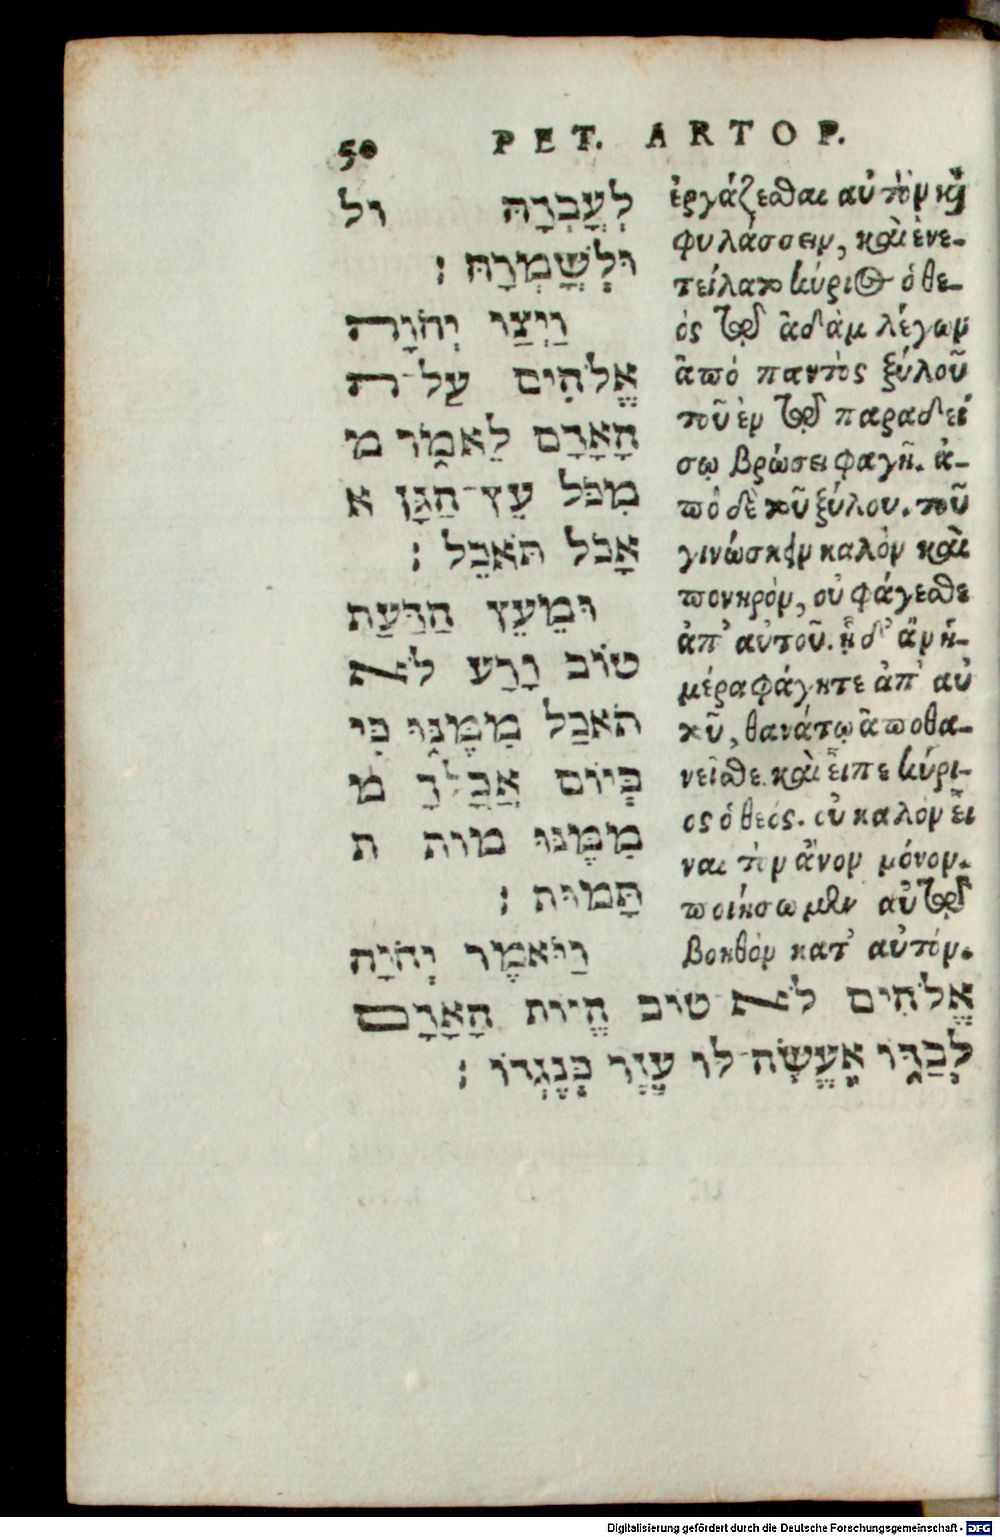 50 PET. ARTOP.
לְעָבְרָהּ ול
וּלְשָׁמְרָהּ ׃
וַיְצַו יְהֹוָה
אֱלֹהִים עַל־ה
הָאָדָם לֵאמֹר מ
מִכֹּל עֵץ־הַגָּן א
אָכֹל תֹּאכֵל ׃
וּמֵעֵץ הַדַּעַת
טוֹב וָרַע לֹא
תֹאכַל מִמֶּנּוּ כִּי
בְּיוֹם אֲכָלְךָ מ
מִמֶּנּוּ מות ת
תָּמוּת ׃
וַיּאמֶר יְהֹוָה
אֱלֹהִים לֹא טוֹב הֱיוֹת הָאָדָם
לְבַדּוֹ אֶעֱשֶׂה־לּוֹ עֵזֶר כְּנֶגְדּוֹ ׃
ἐργάζεσθαι αὐτὸν κỳ
φυλάσσειν, καὶ ἐνε-
τείλατο κύριος ὁ θε-
ός τῷ ἀδὰμ λέγων
ἀπό παντὸς ξύλοῦ
τοῦ ἐν τῷ παραδεί
σῳ βρώσει φαγῆ. ἀ-
πὸ δὲ τοῦ ξύλου. τοῦ
γινώσκειν καλὸν καὶ
πονηρόν, οὐ φάγεσθε
ἀπ' αὐτοῦ. ᾗ δ' ἂν ἡ-
μέρα φάγητε ἀπ' αὐ
τοῦ, θανάτῳ ἀποθα-
νεῖσθε. καὶ εἶπε κύρι-
ος ὁ θεός. οὐ καλὸν εἶ
ναι τὸν ἄνον μόνον.
ποιήσωμεν αὐτῷ
βοηθὸν κατ' αὐτόν.
Digitalisierung gefördert durch die Deutsche Forschungsgemeinschaft - DFG